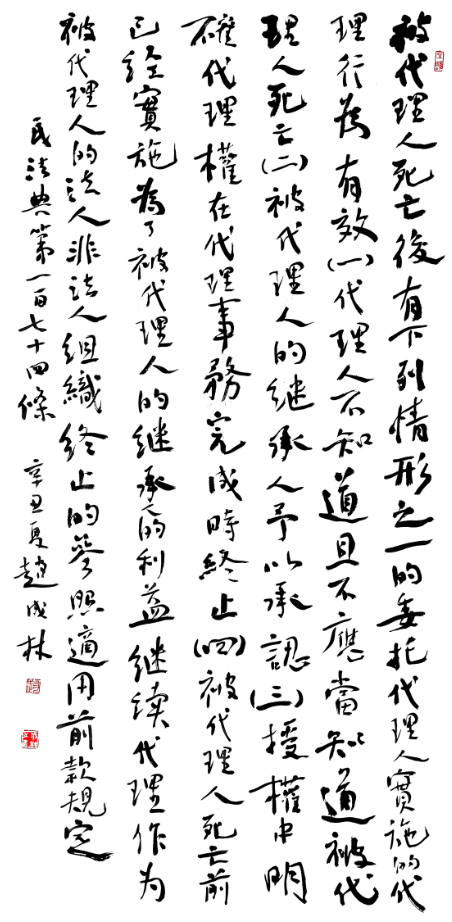 被代理人死亡後有下列情形之一的委托代理人實施的代
理行為有效(一)代理人不知道且不應當知道被代
理人死亡(二)被代理人的继承人予以承認(三)授權中明
確代理權在代理事務完成時終止(四)被代理人死亡前
已經實施為了被代理人的继承人的利益继续代理作为
被代理人的法人非法人組織終止的參照適用前款規定
民法典第一百七十四條 辛丑夏趙成林